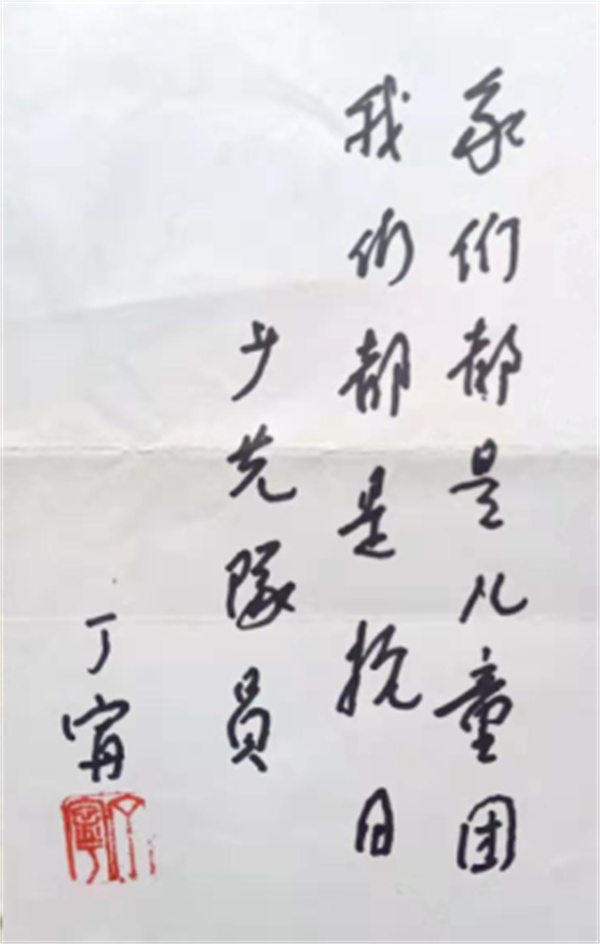 我们都是儿童团
我们都是抗日
少先隊員
丁甯